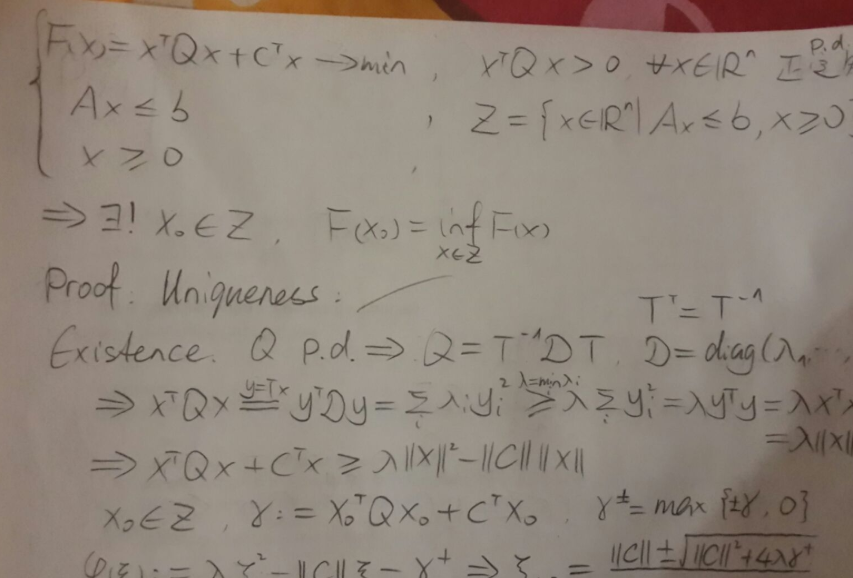 F(x) = xᵀQx + Cᵀx → min , xᵀQx > 0, ∀x∈ℝⁿ p.d.
Ax ≤ b , Z = {x∈ℝⁿ | Ax ≤ b, x ≥ 0}
x ≥ 0
⇒ ∃! x₀ ∈ Z, F(x₀) = inf F(x)
x∈Z
Proof: Uniqueness:
Tᵀ = T⁻¹
Existence. Q p.d. ⇒ Q = T⁻¹DT, D = diag(λ₁...,
⇒ xᵀQx =^{y=Tx} yᵀDy = Σᵢ λᵢyᵢ² ≥^{λ=minλᵢ} λ Σᵢ yᵢ² = λyᵀy = λxᵀx
= λ||x||
⇒ xᵀQx + Cᵀx ≥ λ||x||² − ||C|| ||x||
x₀∈Z, γ := x₀ᵀQx₀ + Cᵀx₀, γ^± = max {±γ, 0}
φ(ξ) := λξ² − ||C||ξ − γ⁺ ⇒ ξ = ||C|| ± √(||C||² + 4λγ⁺)